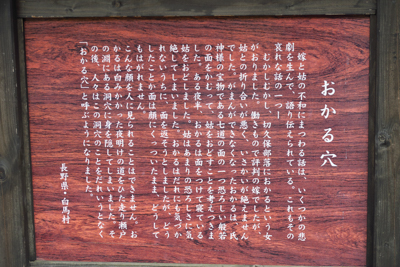 おかる穴
嫁と姑の不和にまつわる話は、いくつかの悲
劇を生んで、語り伝えられている。これもその
哀れな話の一つ―
むかしむかし、切久保部落におかるという女
がおりました。働きもので評判の嫁でしたが、
姑との折り合いが悪く、いさかいが絶えません
でした。がまんができなくなったおかるは、氏
神様の宝物である七道の面の一つ恐ろしい般若
の面をかむって、姑をおどすことを考えつきま
した。ある夜半、おかるは面をつけて寝ている
姑をおどしました。姑はあまりの恐ろしさに気
絶してしまいました。おかるはだれにも気づか
れないうちに、面を返そうとしましたが、どう
したことか面は顔にくっついたまま、どうして
もはがれません。
こんな顔を人に見られることはできません。お
かるは白みかかった夜明けの道をひた走り瀬戸
の渕にある洞穴に身を隠してしまいました。そ
の後、人々はこの洞穴のことをだれいうとなく
「おかる穴」と呼ぶようになりました。
長野県・白馬村